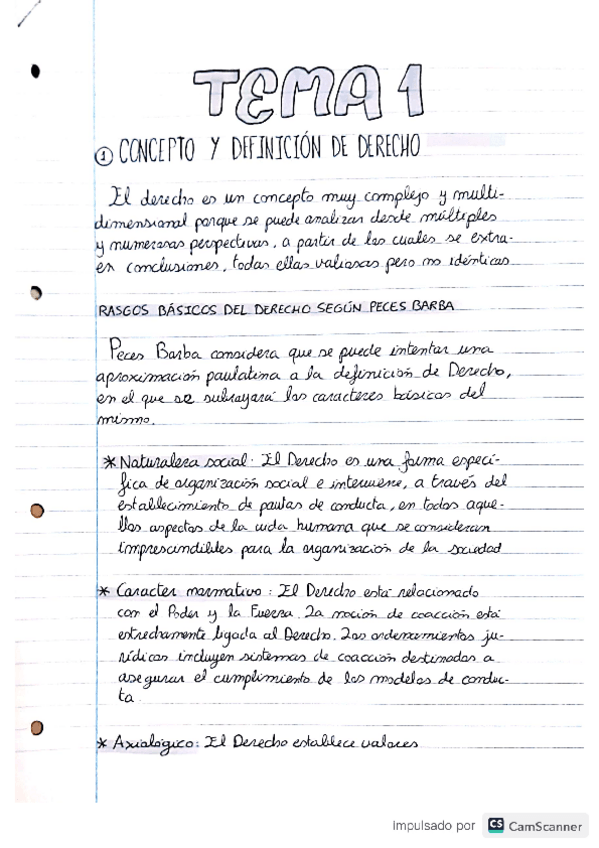 TEMA 1
① CONCEPTO Y DEFINICIÓN DE DERECHO
El derecho es un concepto muy complejo y multi-
dimensional porque se puede analizar desde múltiples
y numerosas perspectivas, a partir de las cuales se extra-
en conclusiones, todas ellas valiosas pero no idénticas
RASGOS BÁSICOS DEL DERECHO SEGÚN PECES BARBA
Peces Barba considera que se puede intentar una
aproximación paulatina a la definición de Derecho,
en el que se subrayará los caracteres básicos del
mismo.
* Naturaleza social: El Derecho es una forma especí-
fica de organización social e interviene, a través del
establecimiento de pautas de conducta, en todos aque-
llos aspectos de la vida humana que se consideran
imprescindibles para la organización de la sociedad
* Caracter normativo: El Derecho está relacionado
con el Poder y la Fuerza. La noción de coacción está
estrechamente ligada al Derecho. Los ordenamientos ju-
rídicos incluyen sistemas de coacción destinados a
asegurar el cumplimiento de los modelos de conduc-
ta
* Axialógico: El Derecho establece valores
Impulsado por CS CamScanner